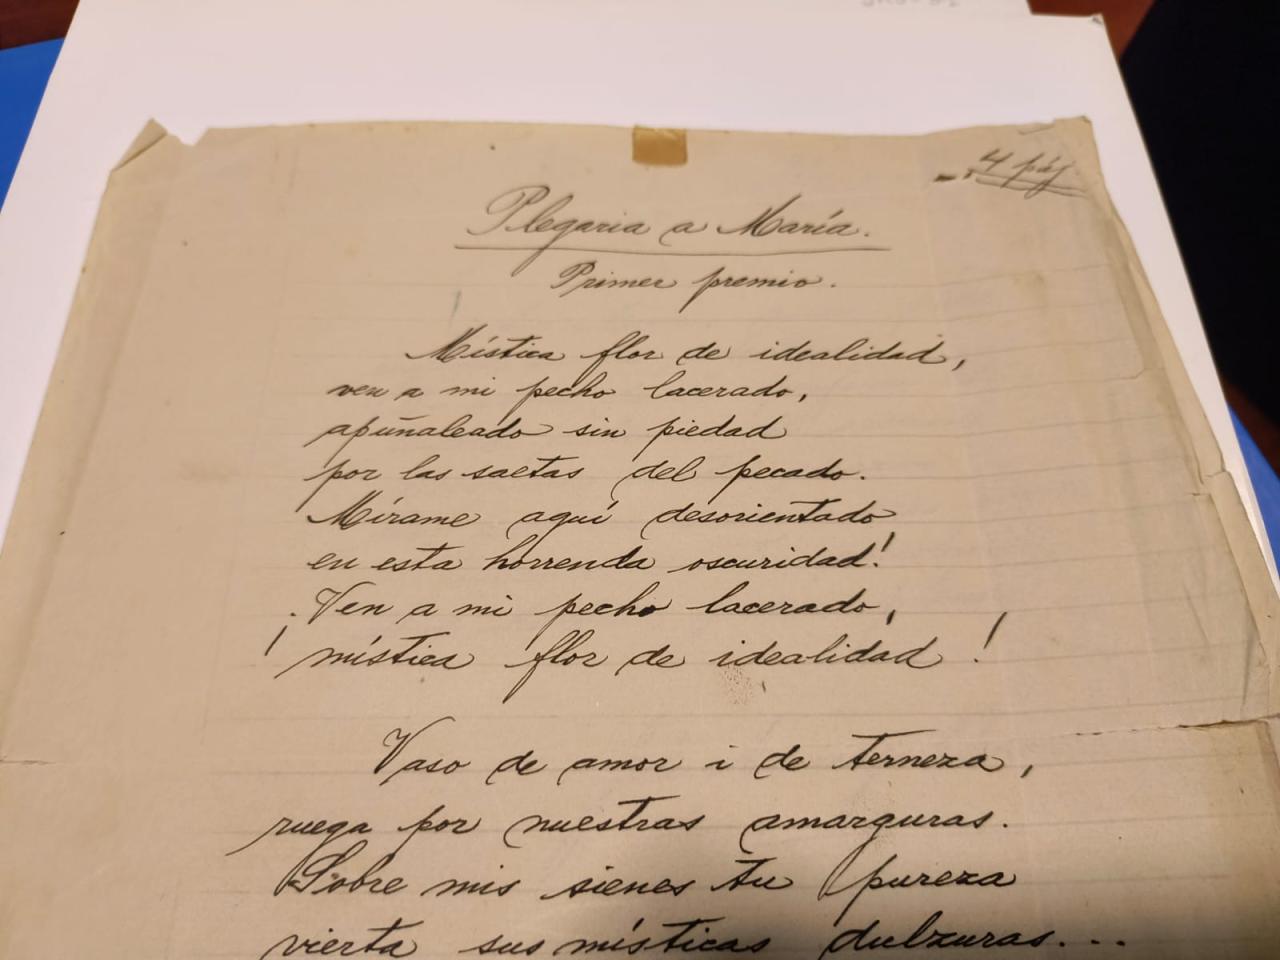 4 páj
Plegaria a María.
Primer premio.
Mística flor de idealidad,
ven a mi pecho lacerado,
apuñaleado sin piedad
por las saetas del pecado.
Mírame aquí desorientado
en esta horrenda oscuridad!
¡Ven a mi pecho lacerado,
mística flor de idealidad!
Vaso de amor i de terneza,
ruega por nuestras amarguras.
Sobre mis sienes tu pureza
vierta sus místicas dulzuras...